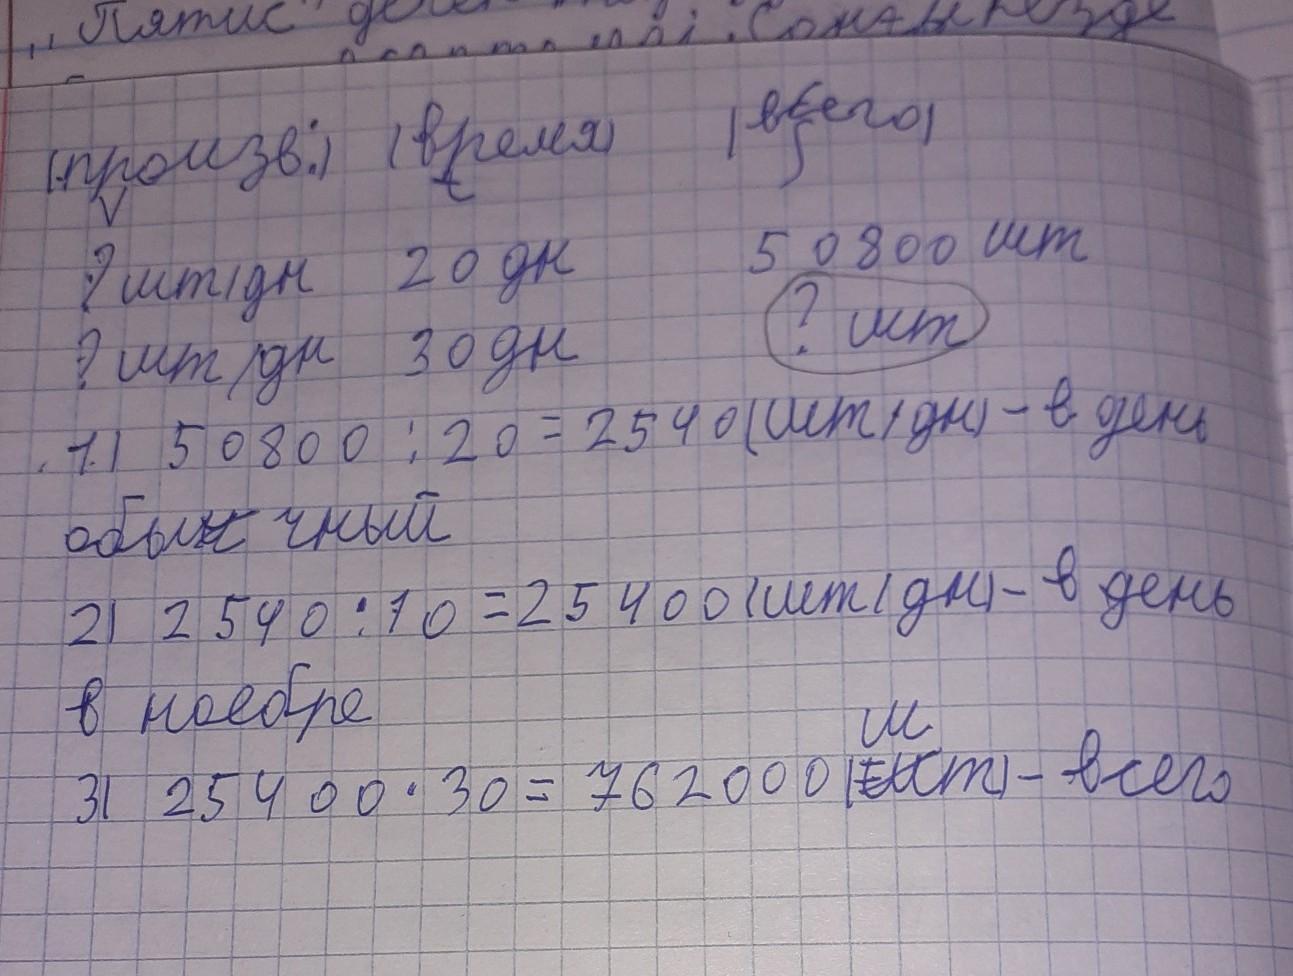 „Пятис
(произв.) (время) (всего)
v t S
? шт/дн 20 дн 50800 шт
? шт/дн 30 дн ? шт
1) 50800 : 20 = 2540 (шт/дн) - в день
обыч чный
2) 2540 : 10 = 25400 (шт/дн) - в день
в ноебре
3) 25400 · 30 = 762000 (шт) - всего